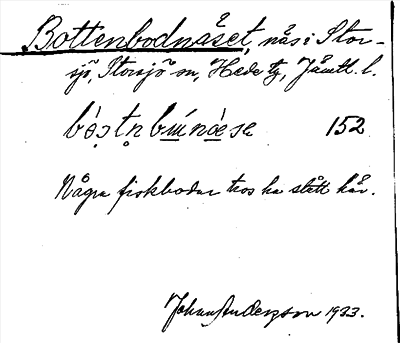 Bottenbodnäset, näs i Stor-
sjö, Storsjö sn, Hede tg, Jämtl. l.
152
Några fiskbodar tros ha stått här.
Johan Anderzson 1933.